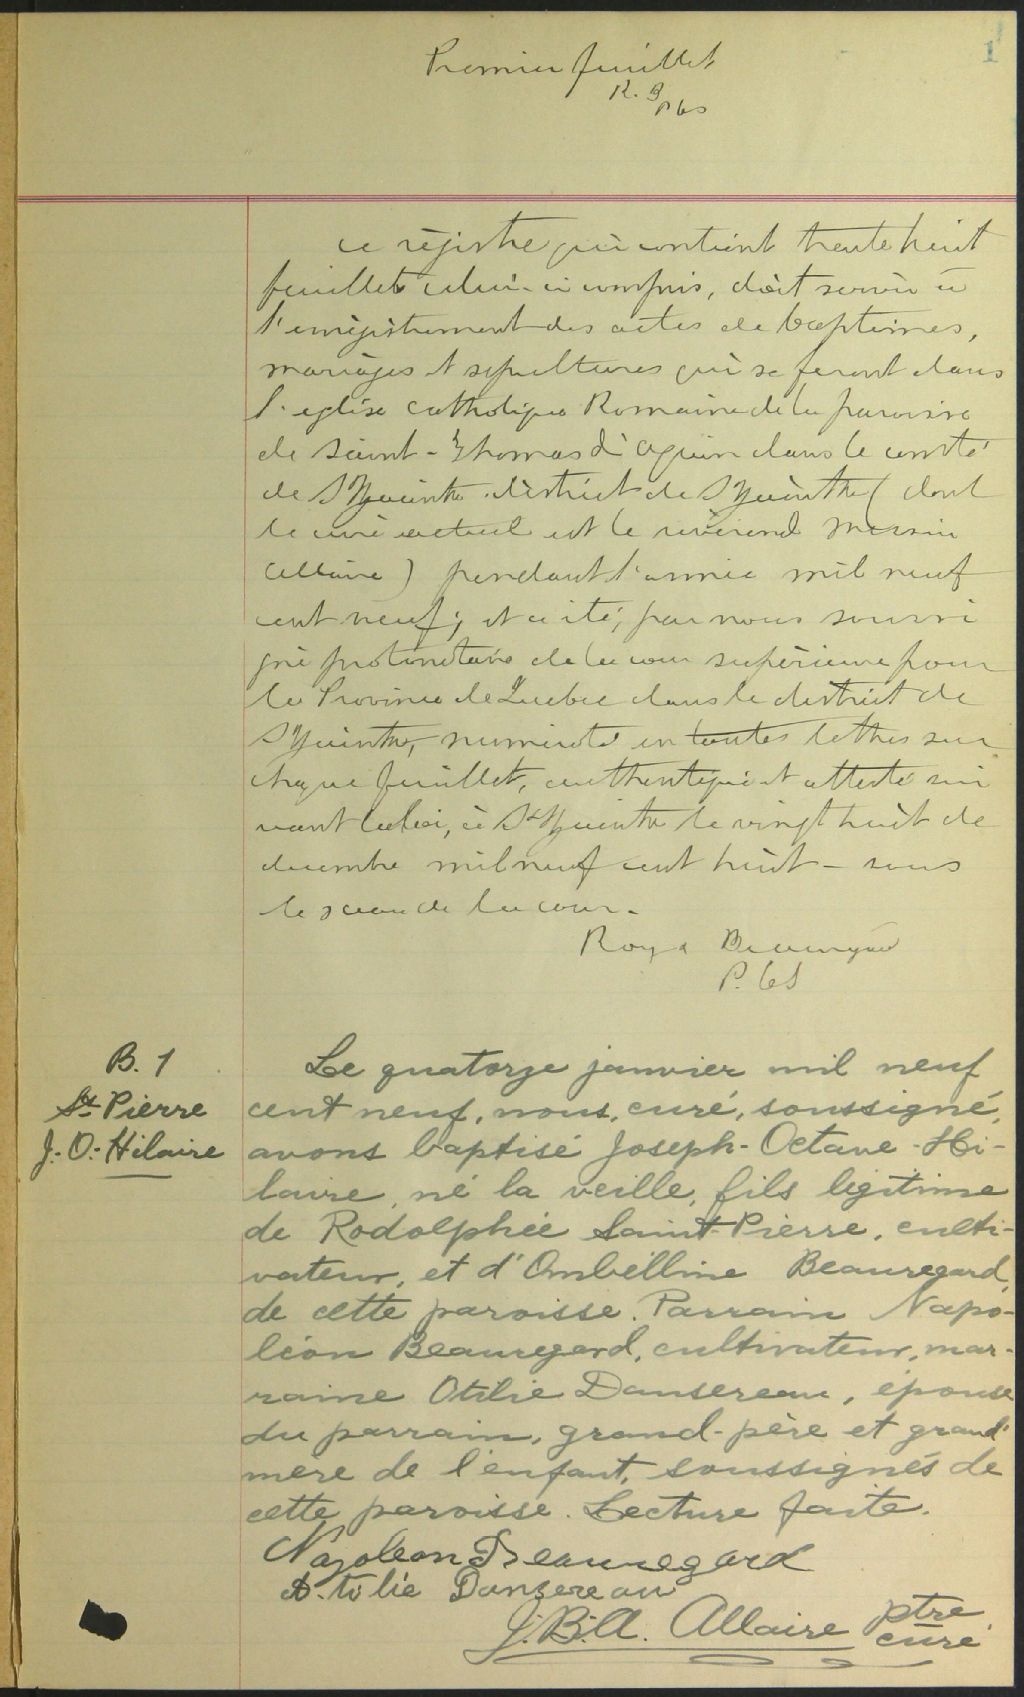 1
Premier feuillet
R. B
P C S
ce régistre qui contient trente huit
feuillets celui-ci compris, doit servir à
l'enrégistrement des actes de baptêmes,
mariages et sépultures qui se feront dans
l'eglise catholique Romaine de la paroisse
de Saint-Thomas d'Aquin dans le comté
de St Hyacinthe district de St Hyacinthe (dont
le curé actuel est le révérend Messire
Allaire) pendant l'année mil neuf
cent neuf; et a été, par nous soussi
gné protonotaire de la cour supérieure pour
la Province de Quebec dans le district de
St Hyacinthe, numéroté en toutes lettres sur
chaque feuillet, authentiqué et attesté sui
vant la loi, à St Hyacinthe le vingt huit de
decembre mil neuf cent huit - sous
le sceau de la cour.
Roy & Beauregard
P. C S
B. 1
St-Pierre
J.-O.-Hilaire
Le quatorze janvier mil neuf
cent neuf, nous, curé, soussigné,
avons baptisé Joseph-Octave-Hi-
laire, né la veille, fils légitime
de Rodolphe Saint-Pierre, culti-
vateur, et d'Ombélline Beauregard,
de cette paroisse. Parrain Napo-
léon Beauregard, cultivateur, mar-
raine Otilie Dansereau, épouse
du parrain, grand-père et grand'
mère de l'enfant, soussignés de
cette paroisse. Lecture faite.
Napoleon Beauregard
Otilie Dansereau
J.B.A. Allaire ptre
curé